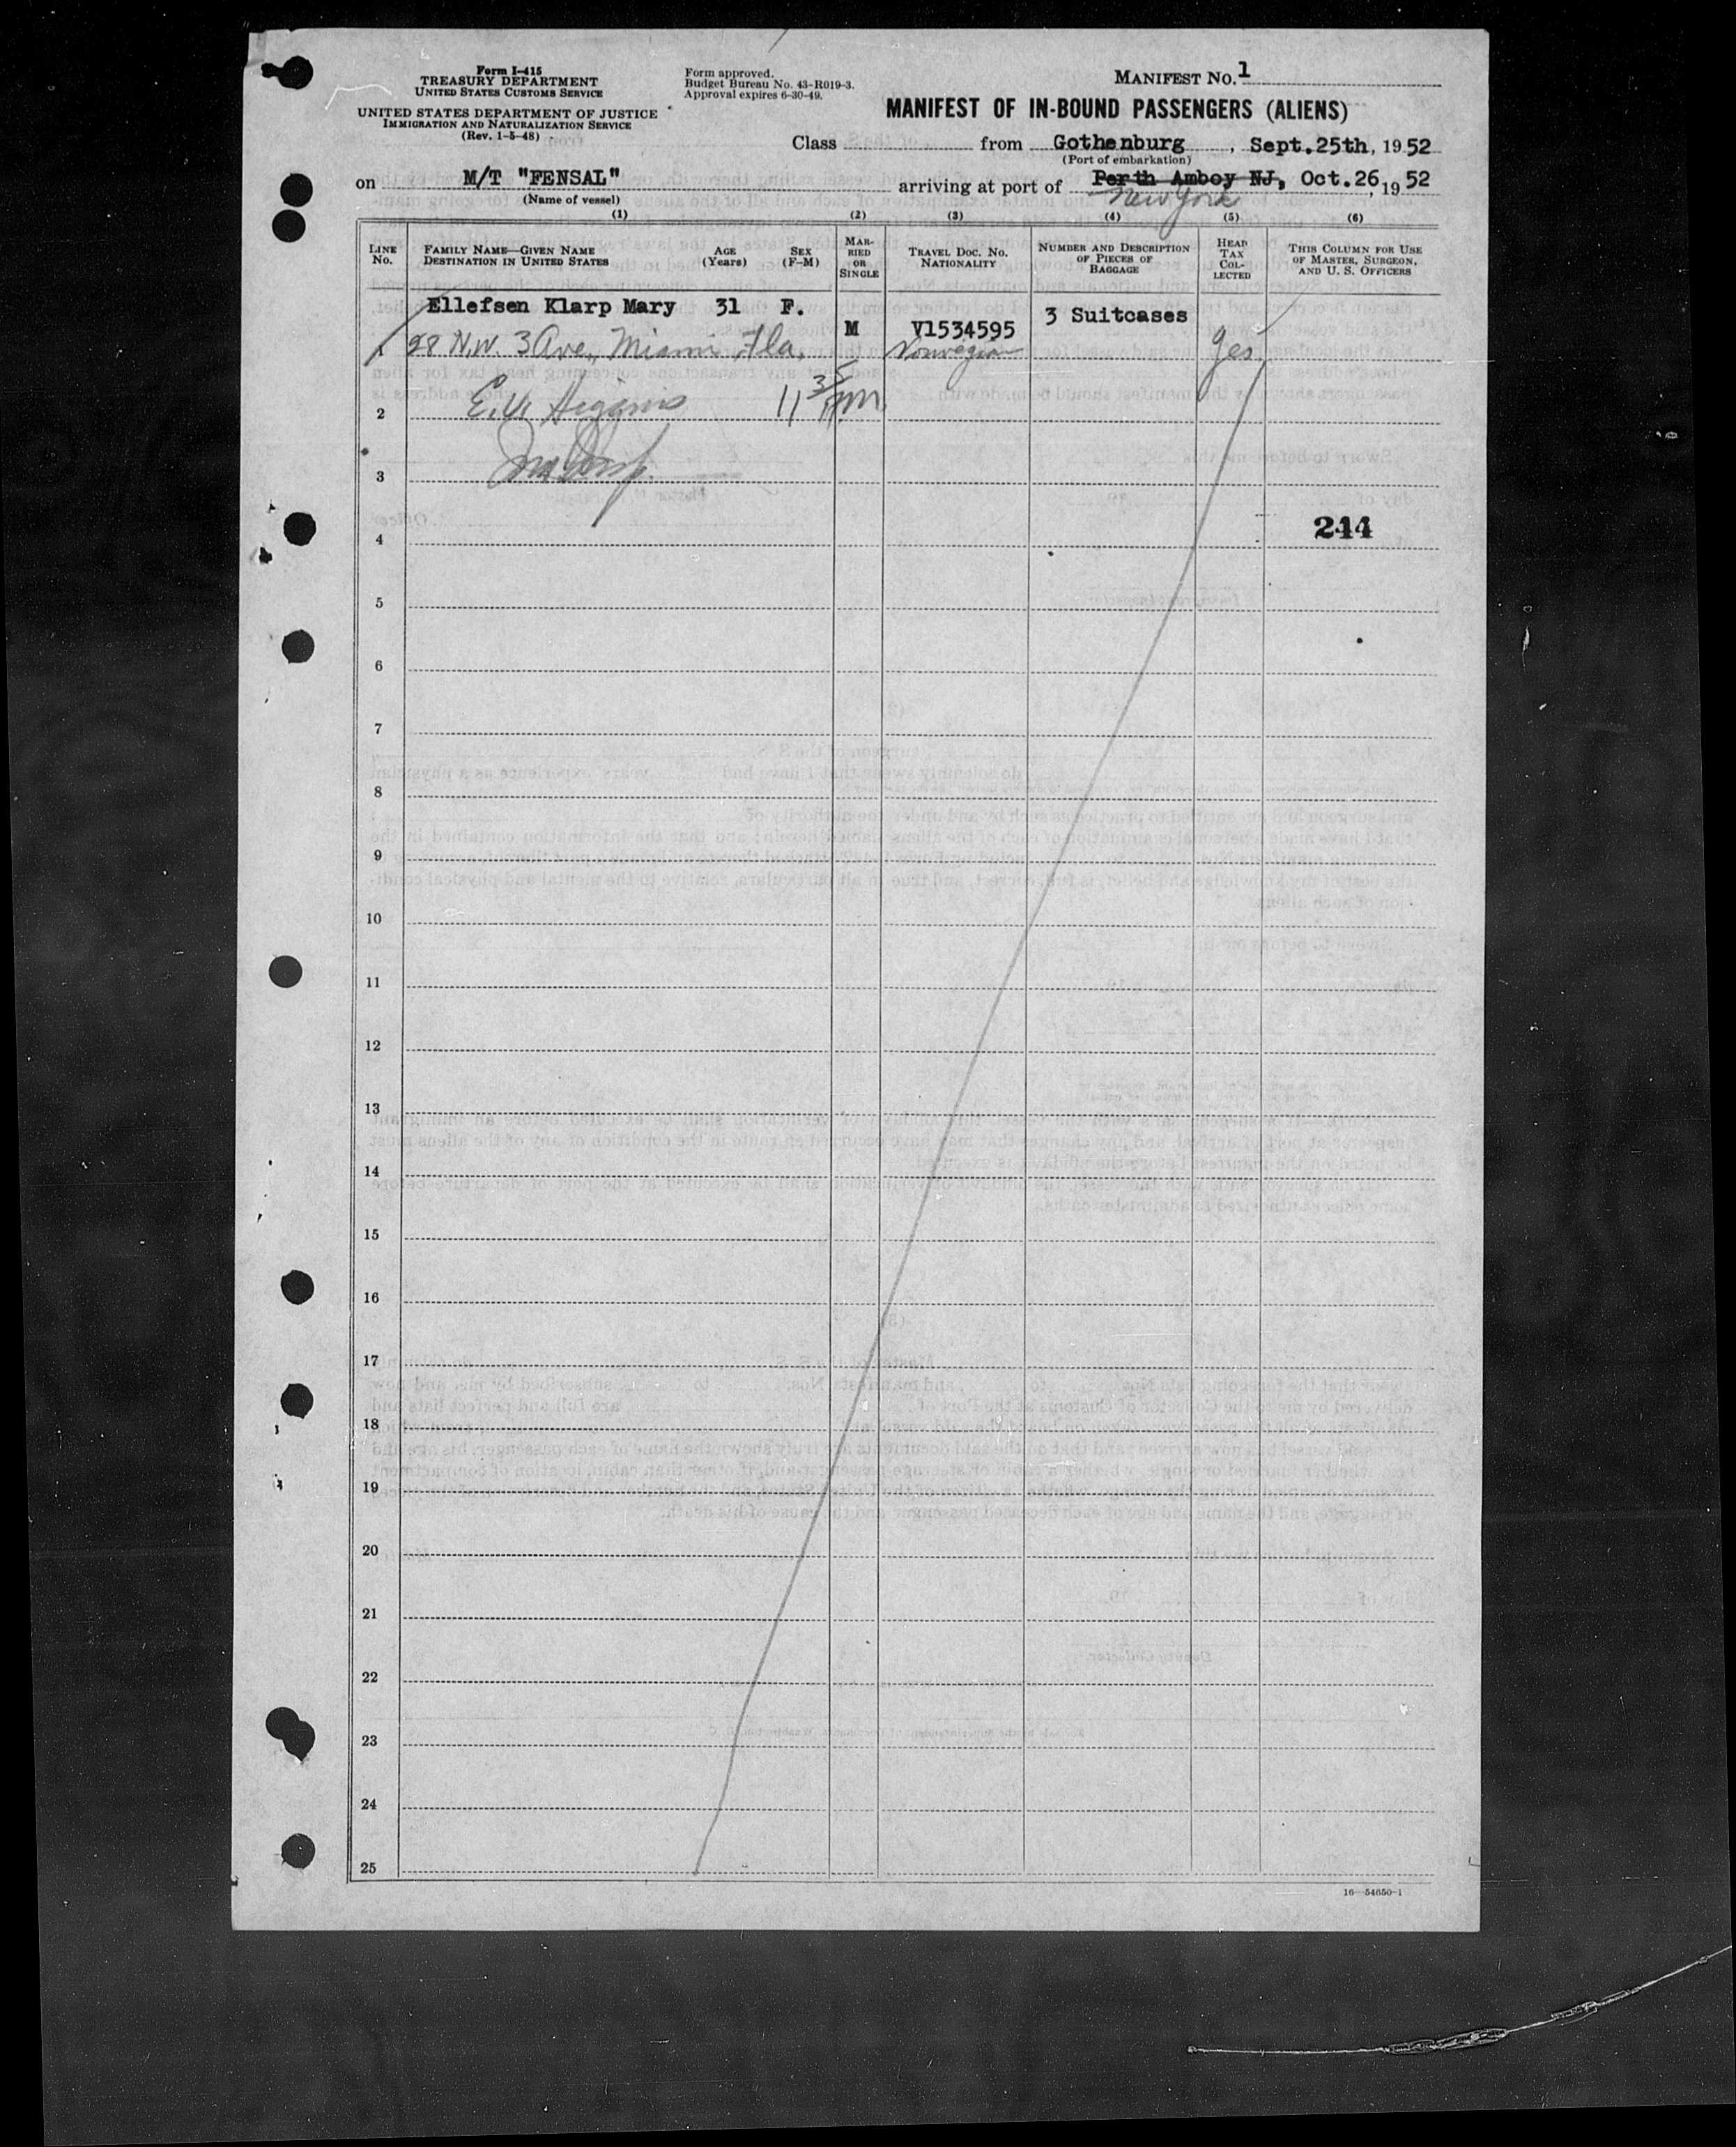 Form I-415
TREASURY DEPARTMENT
UNITED STATES CUSTOMS SERVICE
UNITED STATES DEPARTMENT OF JUSTICE
IMMIGRATION AND NATURALIZATION SERVICE
(Rev. 1-5-48)
Form approved.
Budget Bureau No. 43-R019-3.
Approval expires 6-30-49.
MANIFEST NO. 1
MANIFEST OF IN-BOUND PASSENGERS (ALIENS)
Class from Gothenburg, Sept.25th, 1952
(Port of embarkation)
on M/T "FENSAL" arriving at port of Perth Amboy NJ, Oct.26, 1952
New York
(Name of vessel)
(1) (2) (3) (4) (5) (6)
LINE No. FAMILY NAME—GIVEN NAME DESTINATION IN UNITED STATES AGE (Years) SEX (F-M) MARRIED OR SINGLE TRAVEL DOC. NO. NATIONALITY NUMBER AND DESCRIPTION OF PIECES OF BAGGAGE HEAD TAX COLLECTED THIS COLUMN FOR USE OF MASTER, SURGEON, AND U. S. OFFICERS
Ellefsen Klarp Mary 31 F. M V1534595 3 Suitcases
1 28 N.W. 3 Ave., Miami, Fla. Norwegian Yes
2 E.V. Higgins 11 35 PM
3
4 244
5
6
7
8
9
10
11
12
13
14
15
16
17
18
19
20
21
22
23
24
25
16—54650-1